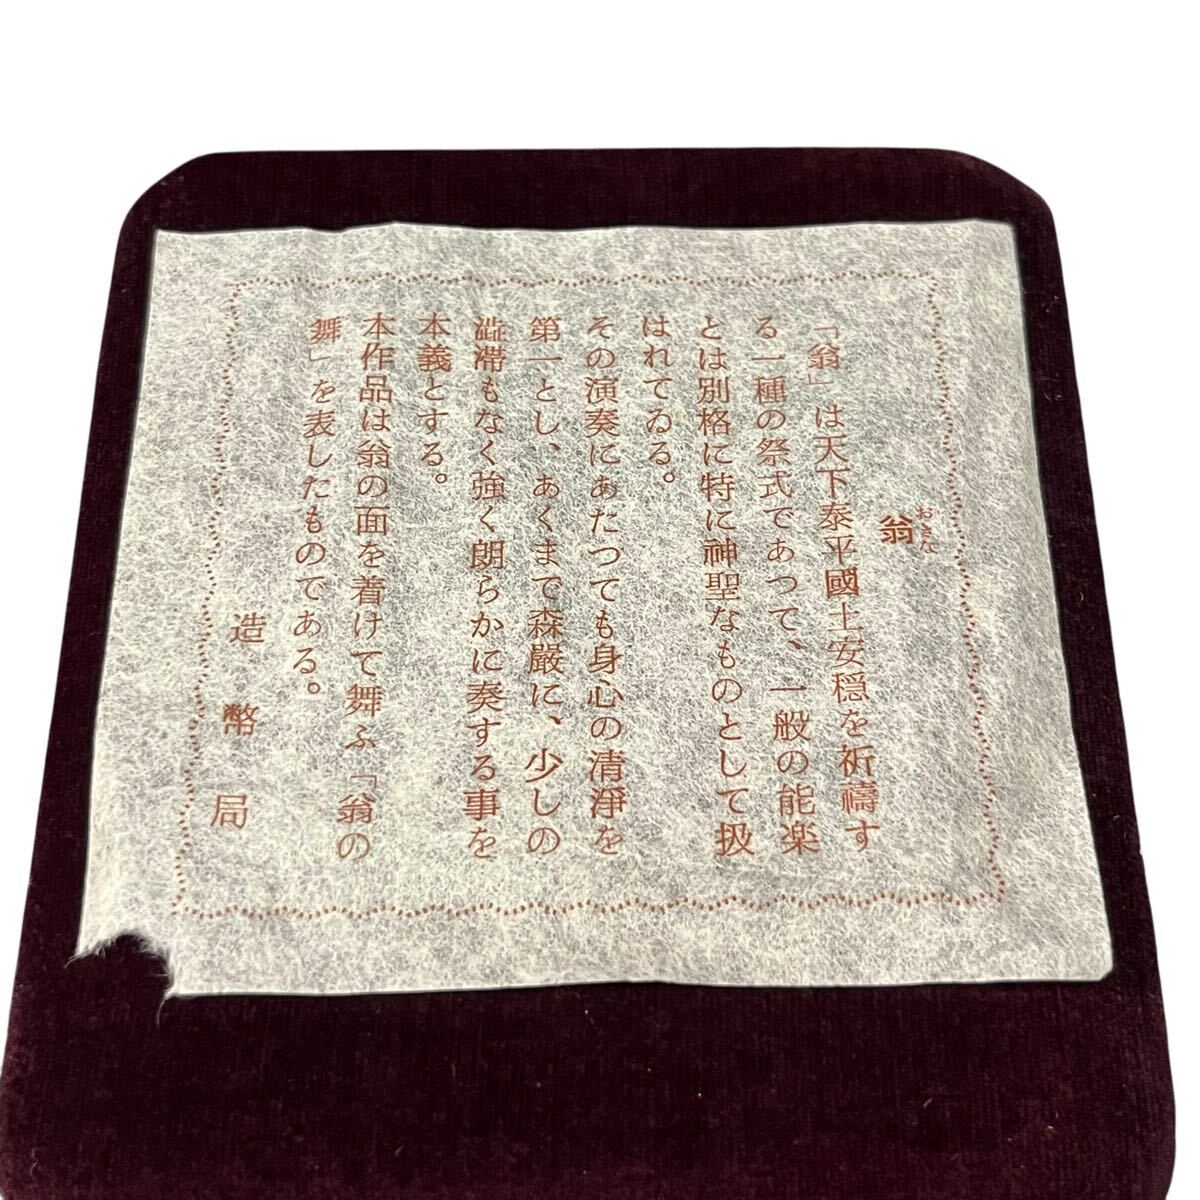 翁
おきな
「翁」は天下泰平國土安穏を祈禱す
る一種の祭式であつて、一般の能楽
とは別格に特に神聖なものとして扱
はれてゐる。
その演奏にあたつても身心の清淨を
第一とし、あくまで森嚴に、少しの
澁滞もなく強く朗らかに奏する事を
本義とする。
本作品は翁の面を着けて舞ふ「翁の
舞」を表したものである。
造幣局